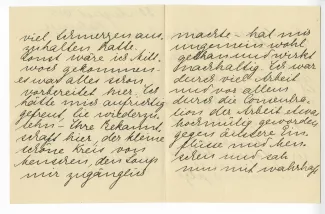 viel, Schmerzen aus-
zuhalten hatte.
Sonst wäre ich Mitt-
woch gekommen
es war alles schon
vorbereitet hier. Es
hätte mich aufrichtig
gefreut, Sie wiederzu-
sehn – Ihre Bekannt-
schaft hier, der kleine
schöne Kreis von
Menschen, den Sie
mir zugänglich
machte – hat mir
ungemein wohl
gethan und wirkt
nachhaltig. Es war
durch viel Arbeit
und vor allem
durch die Concentra-
tion der Arbeit etwas
hochmütig geworden
gegen äussere Ein-
flüsse und Men-
schen und sah
nun mit wahrhaf